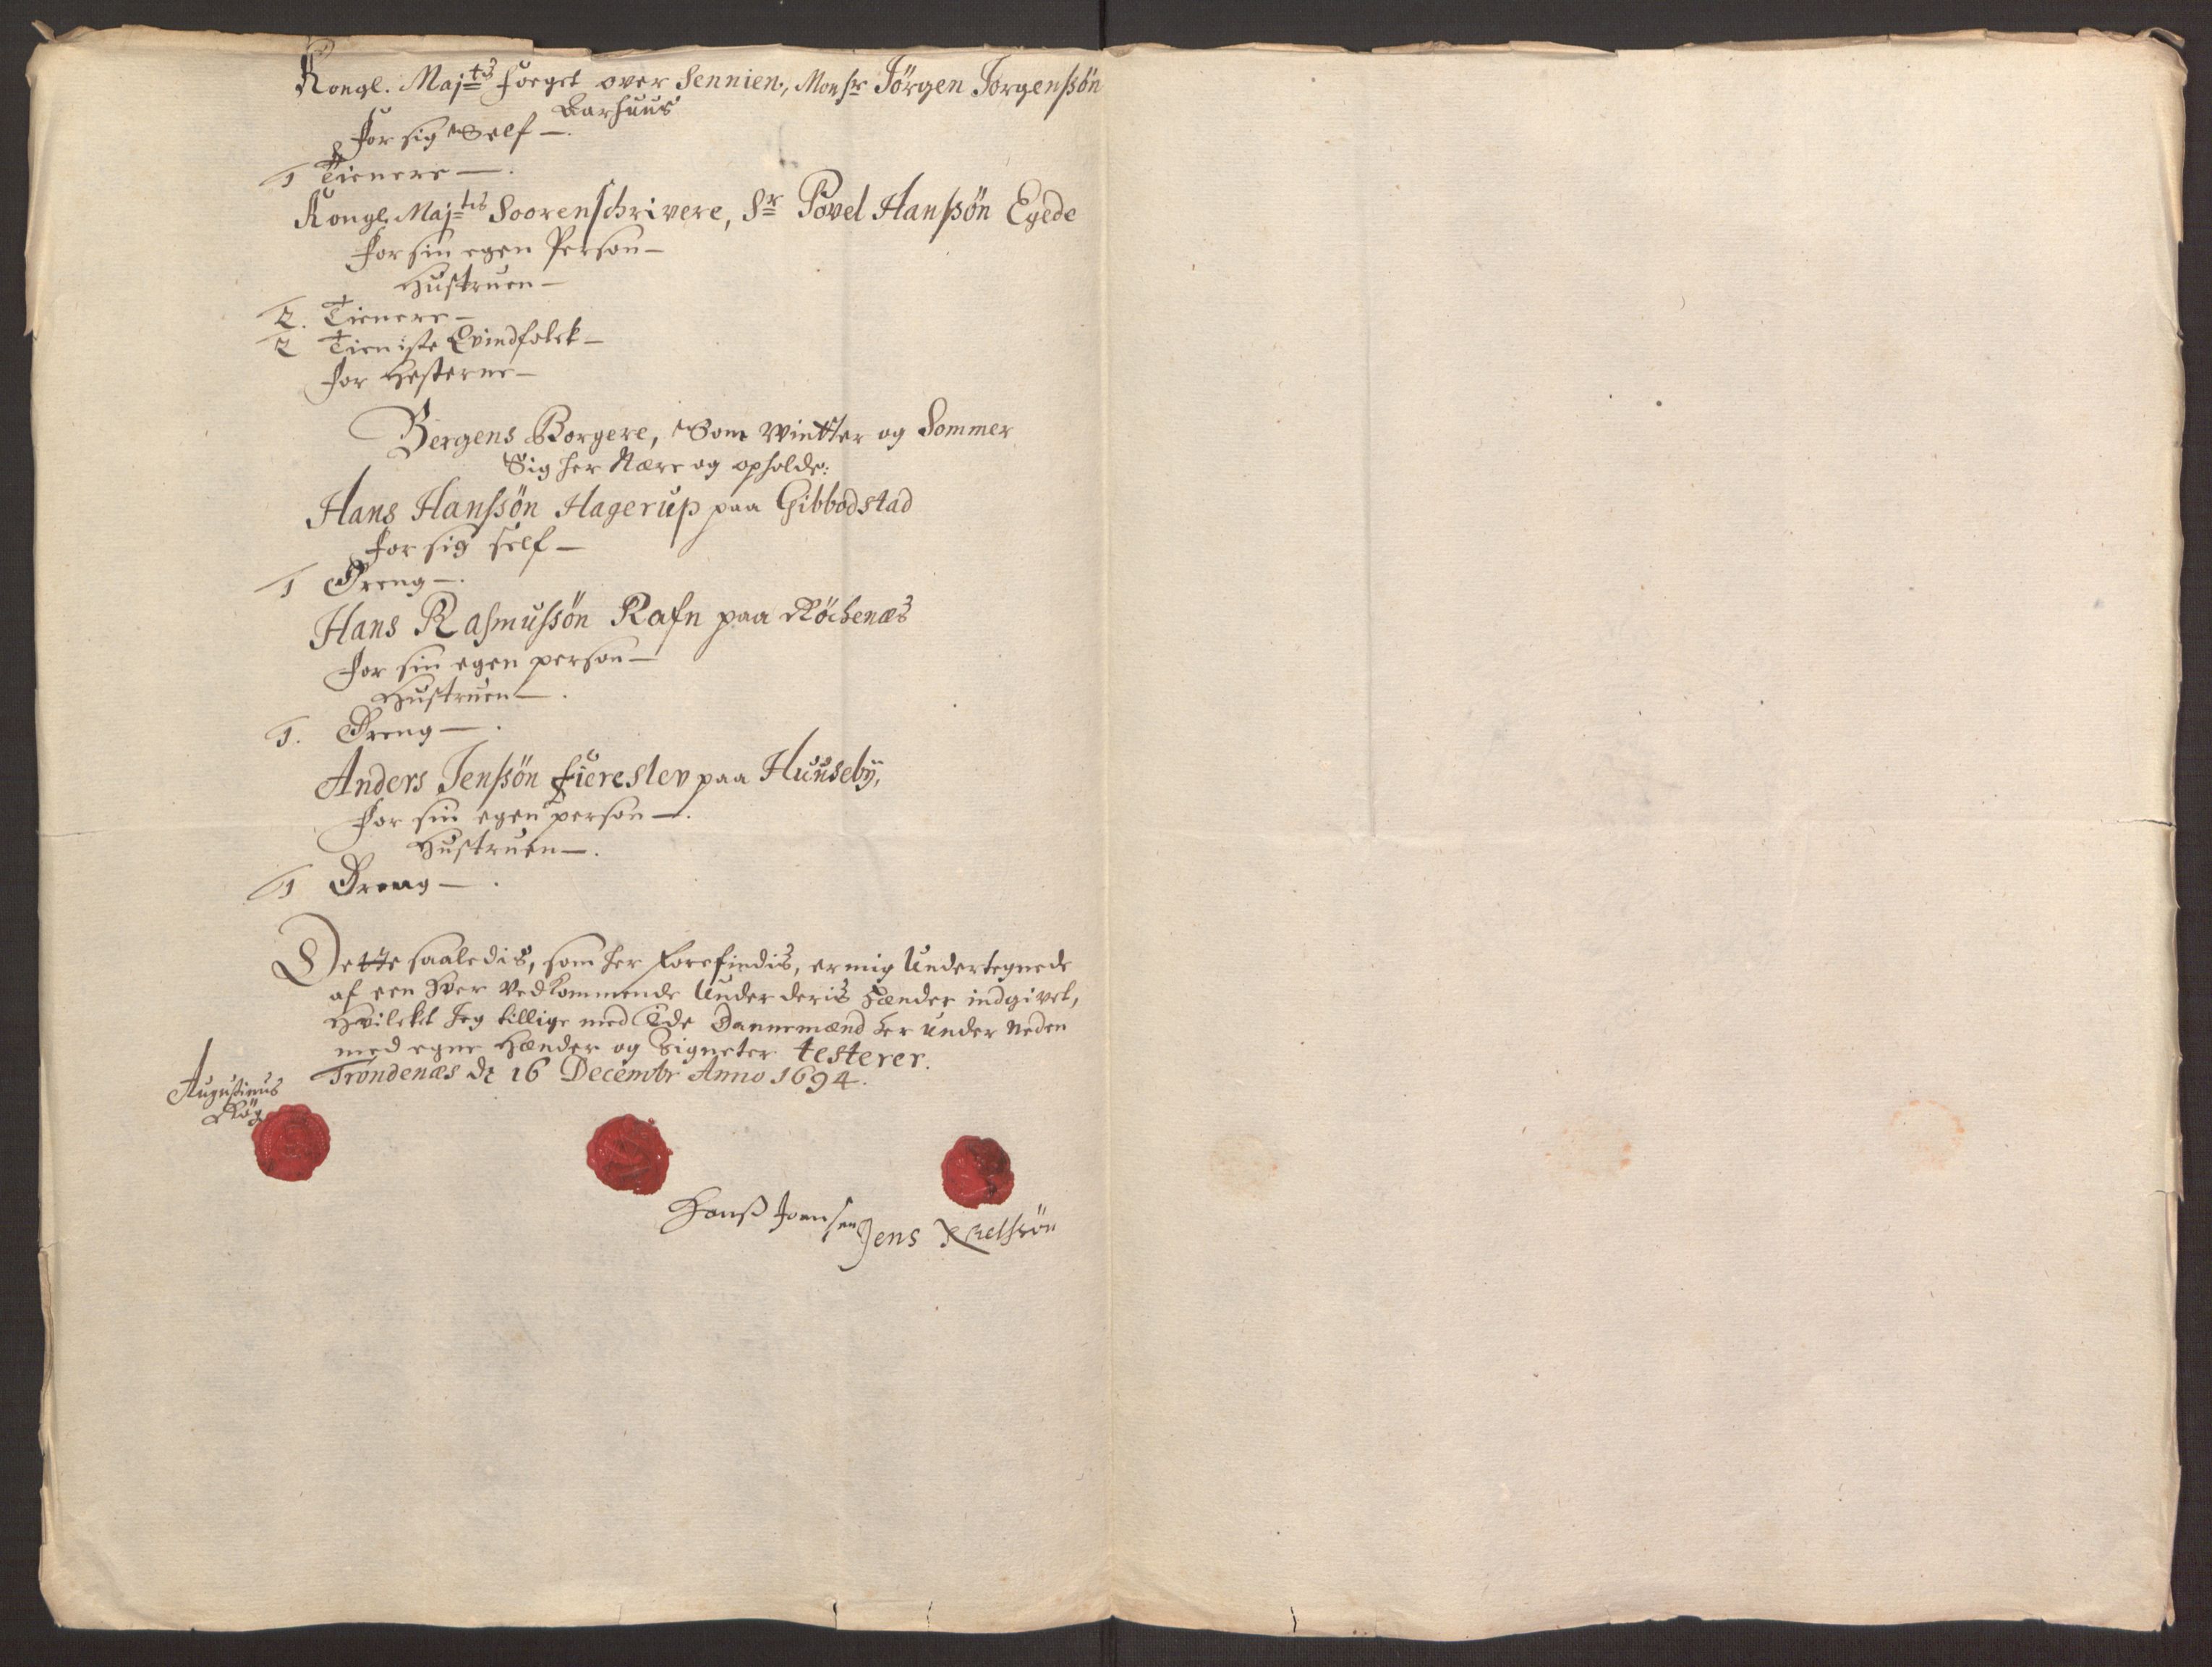 Kongl. Maj=ts foeget over Sennien, Monsr Jörgen Jörgenssön
Aarhuus
For sig Self —.
1 Tienere —.
Kongl. Maj=tts Soorenschrivere, Sr Povel Hanssön Egede
For sin egen Person —
Hustruen —
2. Tienere —
2 Tieniste Qvindfolck —
For Hesterne —
Bergens Borgere, Som Wintter og Sommer
Sig her Nære og opholde:
Hans Hanssön Hagerup paa Gibbodstad
For sig self —
1 Dreng —.
Hans Rasmussön Rafn paa Röchenæs
For sin egen person —
Hustruen —.
1. Dreng —.
Anders Jenssön Fiereslev paa Huuseby,
For sin egen person —.
Hustruen —.
1 Dreng —.
Dette saaledis, som her forefindis, er mig Undertegnede
af een hver Vedkommende Under deris Hænder indgivet,
Hvilchet Jeg tillige med Dannemænd her under Neden
med egne Hænder og Signeter testerer.
Trondenæs dt 16 Decembr Anno 1694.
Augustinus
Rög
Hanss Joensen
Jens Axelsön